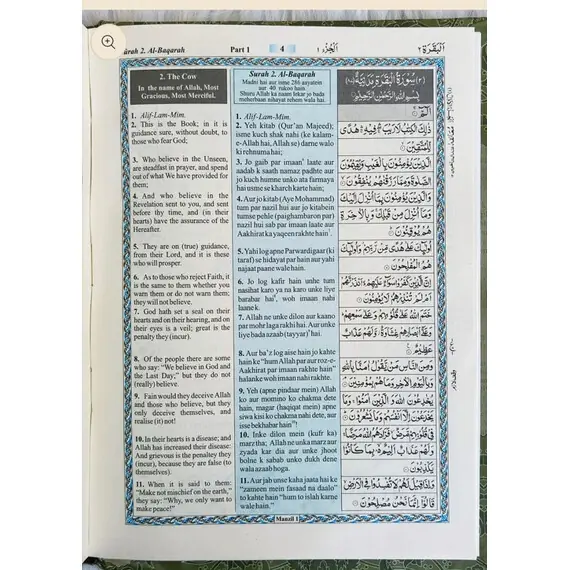 Surah 2. Al-Baqarah
Part 1
4
الجزء ١
البقرة ٢
2. The Cow
In the name of Allah, Most
Gracious, Most Merciful.
1. Alif-Lam-Mim.
2. This is the Book; in it is
guidance sure, without doubt, to
those who fear God;
3. Who believe in the Unseen,
are steadfast in prayer, and spend
out of what We have provided for
them;
4. And who believe in the
Revelation sent to you, and sent
before thy time, and (in their
hearts) have the assurance of the
Hereafter.
5. They are on (true) guidance,
from their Lord, and it is these
who will prosper.
6. As to those who reject Faith, it
is the same to them whether you
warn them or do not warn them;
they will not believe.
7. God hath set a seal on their
hearts and on their hearing, and on
their eyes is a veil; great is the
penalty they (incur).
8. Of the people there are some
who say: "We believe in God and
the Last Day;" but they do not
(really) believe.
9. Fain would they deceive Allah
and those who believe, but they
only deceive themselves, and
realise (it) not!
10. In their hearts is a disease; and
Allah has increased their disease:
And grievous is the penalty they
(incur), because they are false (to
themselves).
11. When it is said to them:
"Make not mischief on the earth,"
they say: "Why, we only want to
make peace!"
Surah 2. Al-Baqarah
Madni hai aur isme 286 aayatein
aur 40 rukoo hain
Shuru Allah ka naam lekar jo bada
meherbaan nihayat rehem wala hai.
1. Alif-Lam-Mim.
2. Yeh kitab (Qur'an Majeed);
isme kuch shak nahi (ke kalam-
e-Allah hai, Allah se) darne walo
ki rehnuma hai;
3. Jo gaib par imaan laate aur
aadab k saath namaz padhte aur
jo kuch humne unko ata farmaya
hai usme se kharch karte hain;
4. Aur jo kitab (Aye Mohammad)
tum par nazil hui aur jo kitabein
tumse pehle (paighambaron par)
nazil hui sab par imaan laate aur
Aakhirat ka yaqeen rakhte hain
5. Yahi log apne Parwardigaar (ki
taraf) se hidayat par hain aur yahi
najaat paane wale hain.
6. Jo log kafir hain unhe tum
nasihat karo ya na karo unke liye
barabar hai, woh imaan nahi
laane k.
7. Allah ne unke dilon aur kaano
par mohr laga rakhi hai. Aur unke
liye bada azaab (tayyar) hai.
8. Aur ba'z log aise hain jo kahte
hain ke "hum Allah par aur roz-e-
Aakhirat par imaan rakhte hain"
halanke woh imaan nahi rakhte.
9. Yeh (apne pindaar mein) Allah
ko aur momino ko chakma dete
hain, magar (haqiqat mein) apne
siwa kisi ko chakma nahi dete, aur
isse bekhabar hain
10. Inke dilon mein (kufr ka)
marz tha; Allah ne unka marz aur
zyada kar dia aur unke jhoot
bolne k sabab unko dukh dene
wala azaab hoga.
11. Aur jab unse kaha jaata hai ke
"zameen mein fasaad na daalo"
to kahte hain "hum to islah karne
wale hain."
بسم الله الرحمن الرحيم
الم
ذلك الكتب لا ريب فيه هدى
للمتقين
الذين يؤمنون بالغيب ويقيمون
الصلوة ومما رزقنهم ينفقون
والذين يؤمنون بما انزل اليك
وما انزل من قبلك وبالاخرة
هم يوقنون
اولئك على هدى من ربهم واولئك
هم المفلحون
ان الذين كفروا سواء عليهم ءانذرتهم
ام لم تنذرهم لا يؤمنون
ختم الله على قلوبهم وعلى سمعهم
وعلى ابصارهم غشاوة ولهم عذاب
عظيم
ومن الناس من يقول امنا بالله
وباليوم الاخر وما هم بمؤمنين
يخدعون الله والذين امنوا وما
يخدعون الا انفسهم وما يشعرون
في قلوبهم مرض فزادهم الله مرضا
ولهم عذاب اليم بما كانوا
يكذبون
واذا قيل لهم لا تفسدوا في الارض
قالوا انما نحن مصلحون
Manzil 1